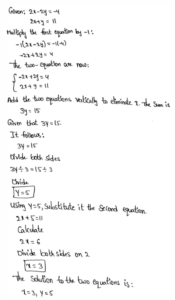 Given: 2x-2y=-4
2x+y=11
Multiply the first equation by -1:
-1(2x-2y)=-1(-4)
-2x+2y=4
The two-equation are now:
-2x+2y=4
2x+y=11
Add the two equations vertically to eliminate x. The sum is
3y=15
Given that 3y=15
It follows:
3y=15
Divide both sides
3y÷3=15÷3
Divide
y=5
Using y=5, substitute it the second equation
2x+5=11
Calculate
2x=6
Divide both sides on 2
x=3
The solution to the two equations is:
x=3, y=5